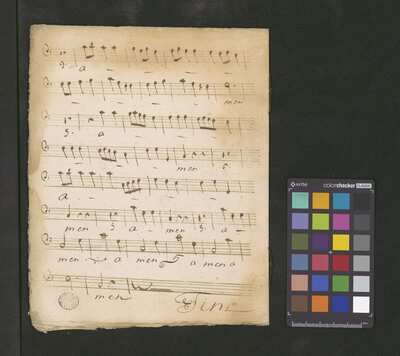 x-rite colorchecker CLASSIC
a
men
a
men
a
men a men a
men a men a men a
men Fine